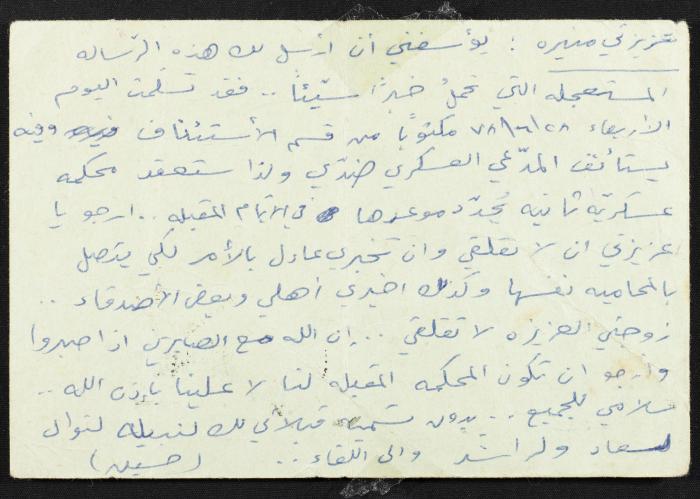 عزيزتي منيره : يؤسفني أن أرسل لك هذه الرساله
المستعجله التي تحمل خبراً سيّئاً .. فقد تسلمت اليوم
الأربعاء ٧٨/٦/٢٨ مكتوباً من قسم الأستئناف وفيه
يستأنف المدّعي العسكري ضدّي ولذا ستعقد محكمه
عسكريّه ثانيه يُحدّد موعدها في الأيّام المقبله .. ارجو يا
عزيزتي ان لا تقلقي وان تخبري عادل بالأمر لكي يتصل
بالمحاميه نفسها وكذلك اخبري أهلي وبعض الأصدقاء ..
زوجتي العزيزه لا تقلقي ... إن الله مع الصابرين اذا صبروا
وأرجو ان تكون المحكمه المقبله لنا لا علينا بإذن الله ..
سلامي للجميع .. بدون تسميه قبلاتي لك لنبيله لنوال
لسعاد ولراشد والى اللقاء .. (حسين)